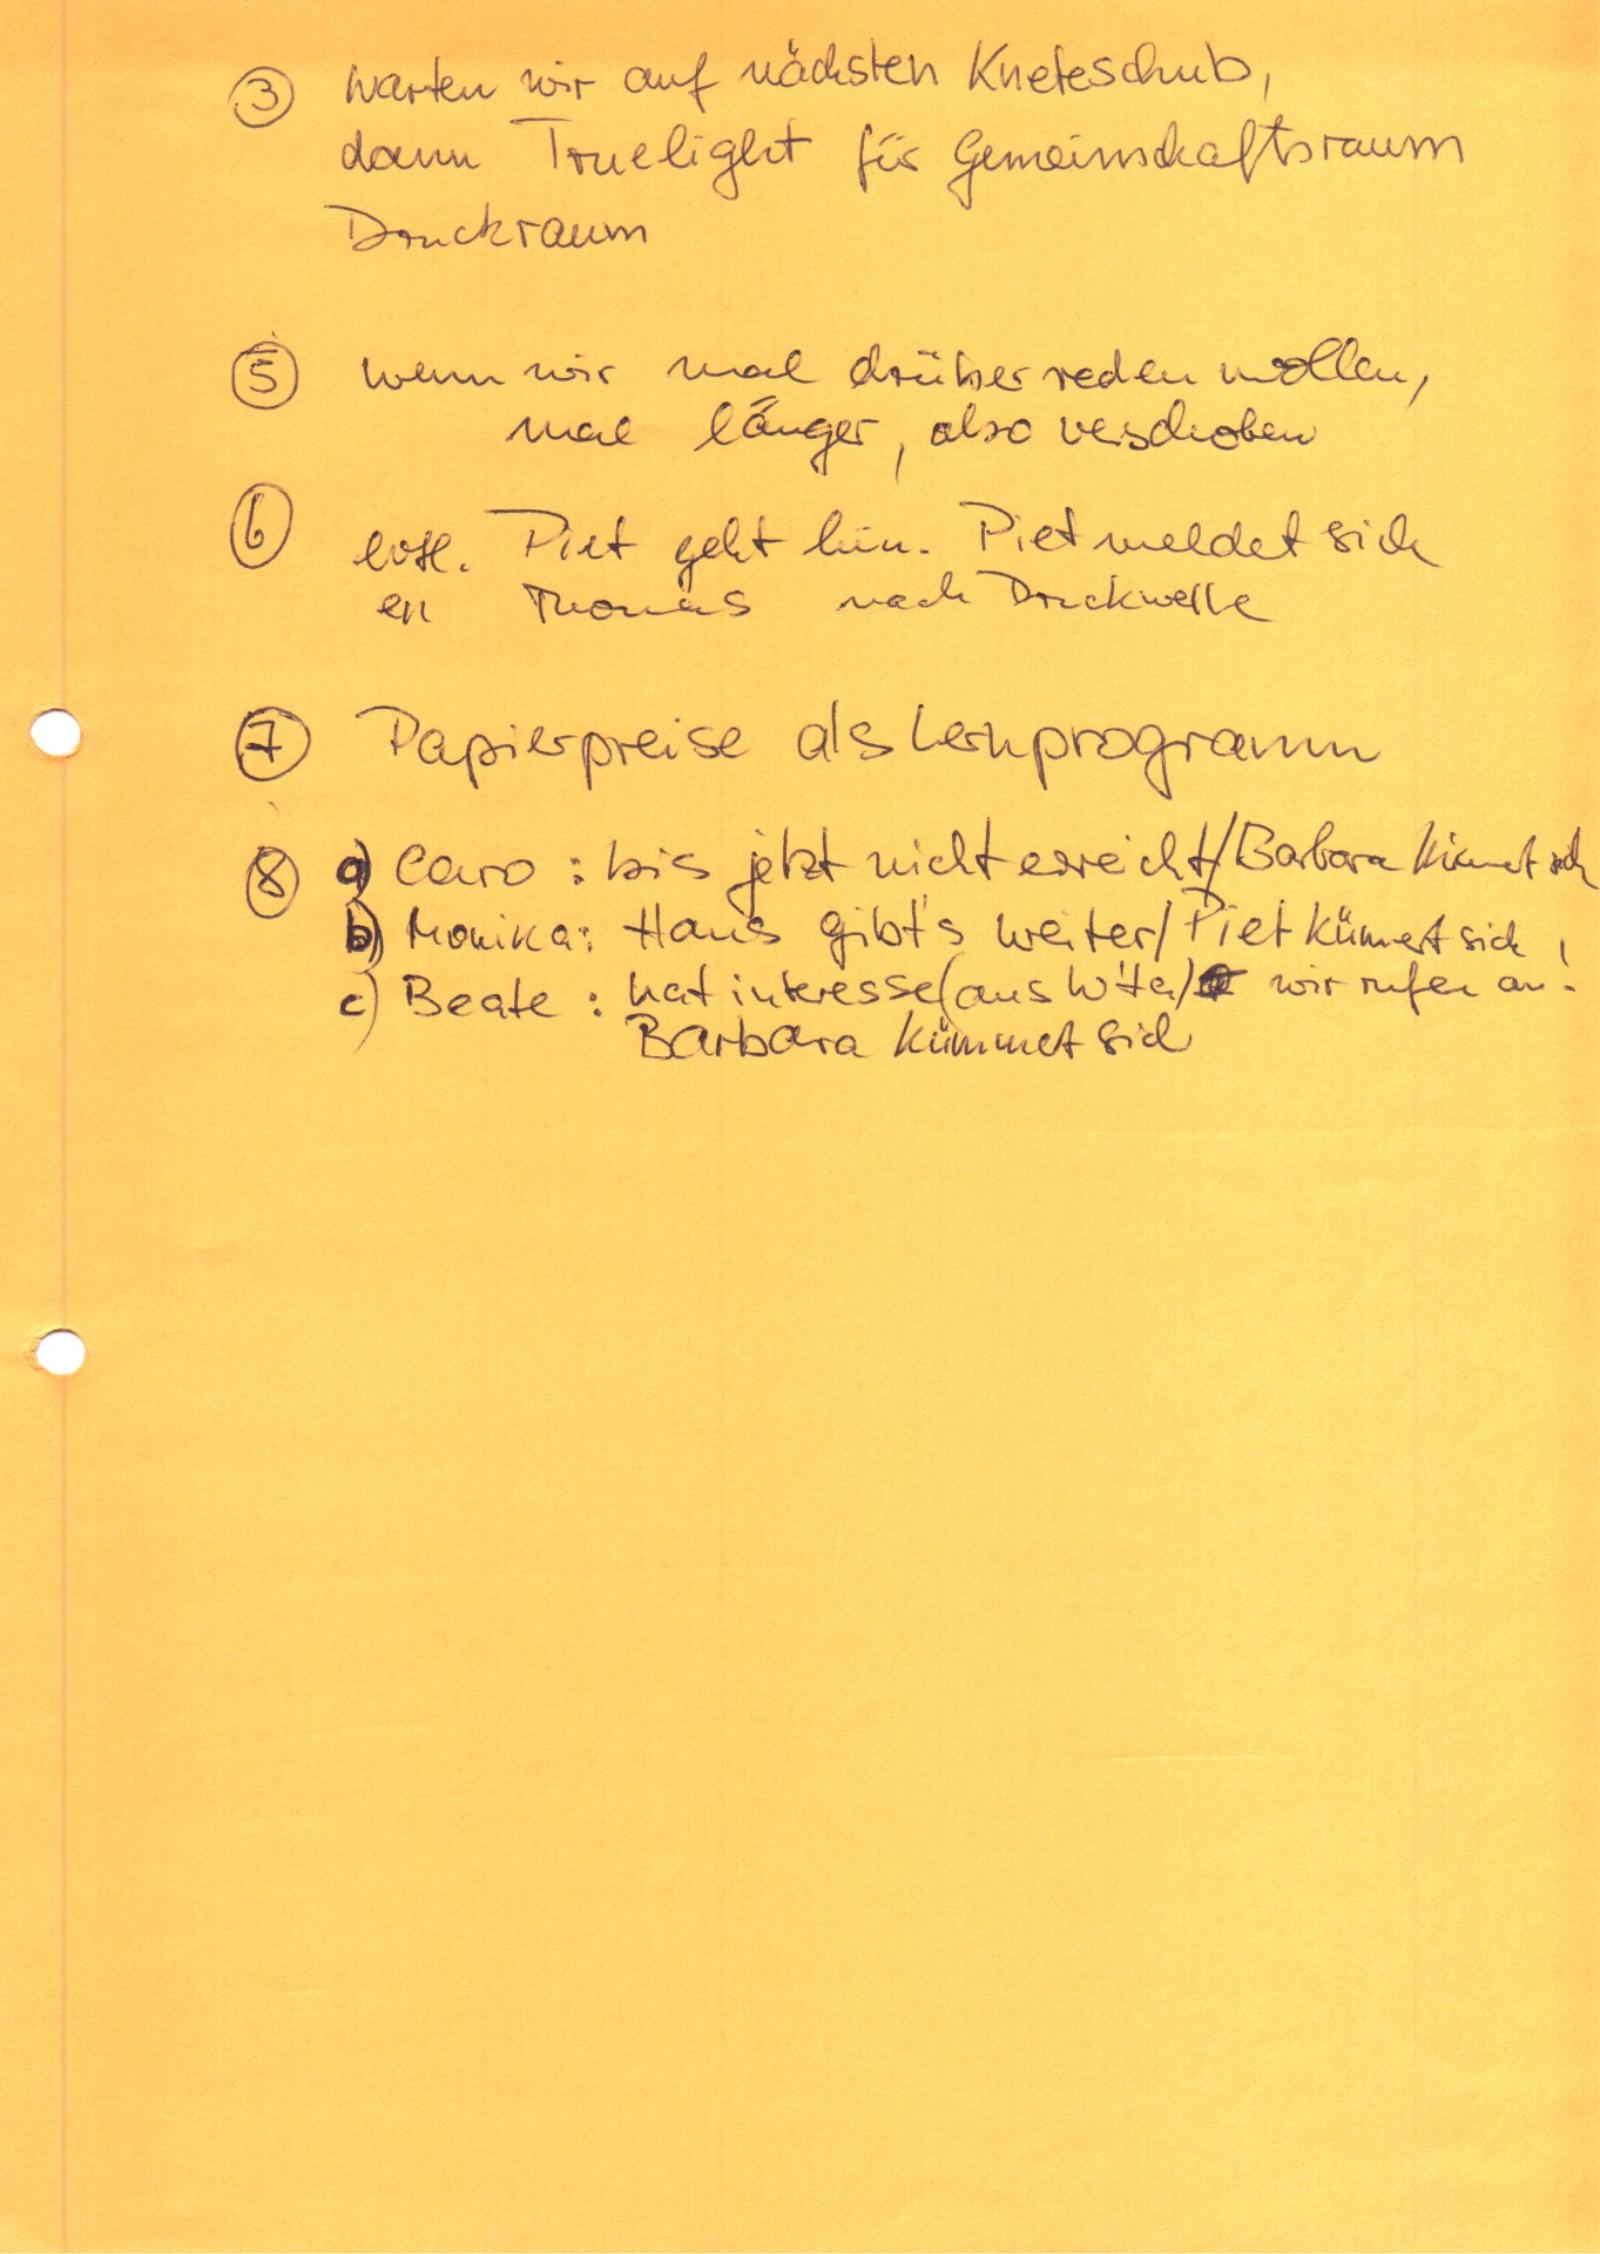 ③ warten wir auf nächsten Kneteschub,
dann Truelight für Gemeinschaftsraum
Druckraum
⑤ wenn wir mal drüber reden wollen,
mal länger, also verschoben
⑥ evtl. Piet geht hin. Piet meldet sich
en Thomas nach Druckwelle
⑦ Papierpreise als Lernprogramm
⑧ a) Caro : bis jetzt nicht erreicht/Barbara kümmert sich
b) Monika: Hans gibt's weiter/Piet kümmert sich
c) Beate : hat interesse (aus W'tal) wir rufen an!
Barbara kümmert sich